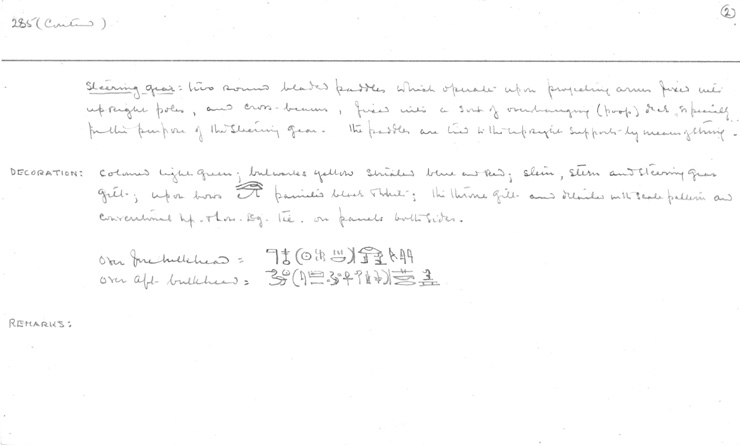 ②
285 (Contd)
Steering gear: two round bladed paddles which operate upon projecting arms fixed into
upright poles, and cross-beams, fixed into a sort of overhanging (poop) deck, specially
for the purpose of the steering gear. The paddles are tied to the upright supports by means of string.
DECORATION: Coloured light green; bulwarks yellow striated blue and red; stem, stern and steering gear
gilt; upon bows 𓂀 painted black & white; the throne gilt and detailed with scale pattern and
conventional Up. & Low. Eg. on panels both sides.
Over fore bulkhead =
Over aft bulkhead =
REMARKS: